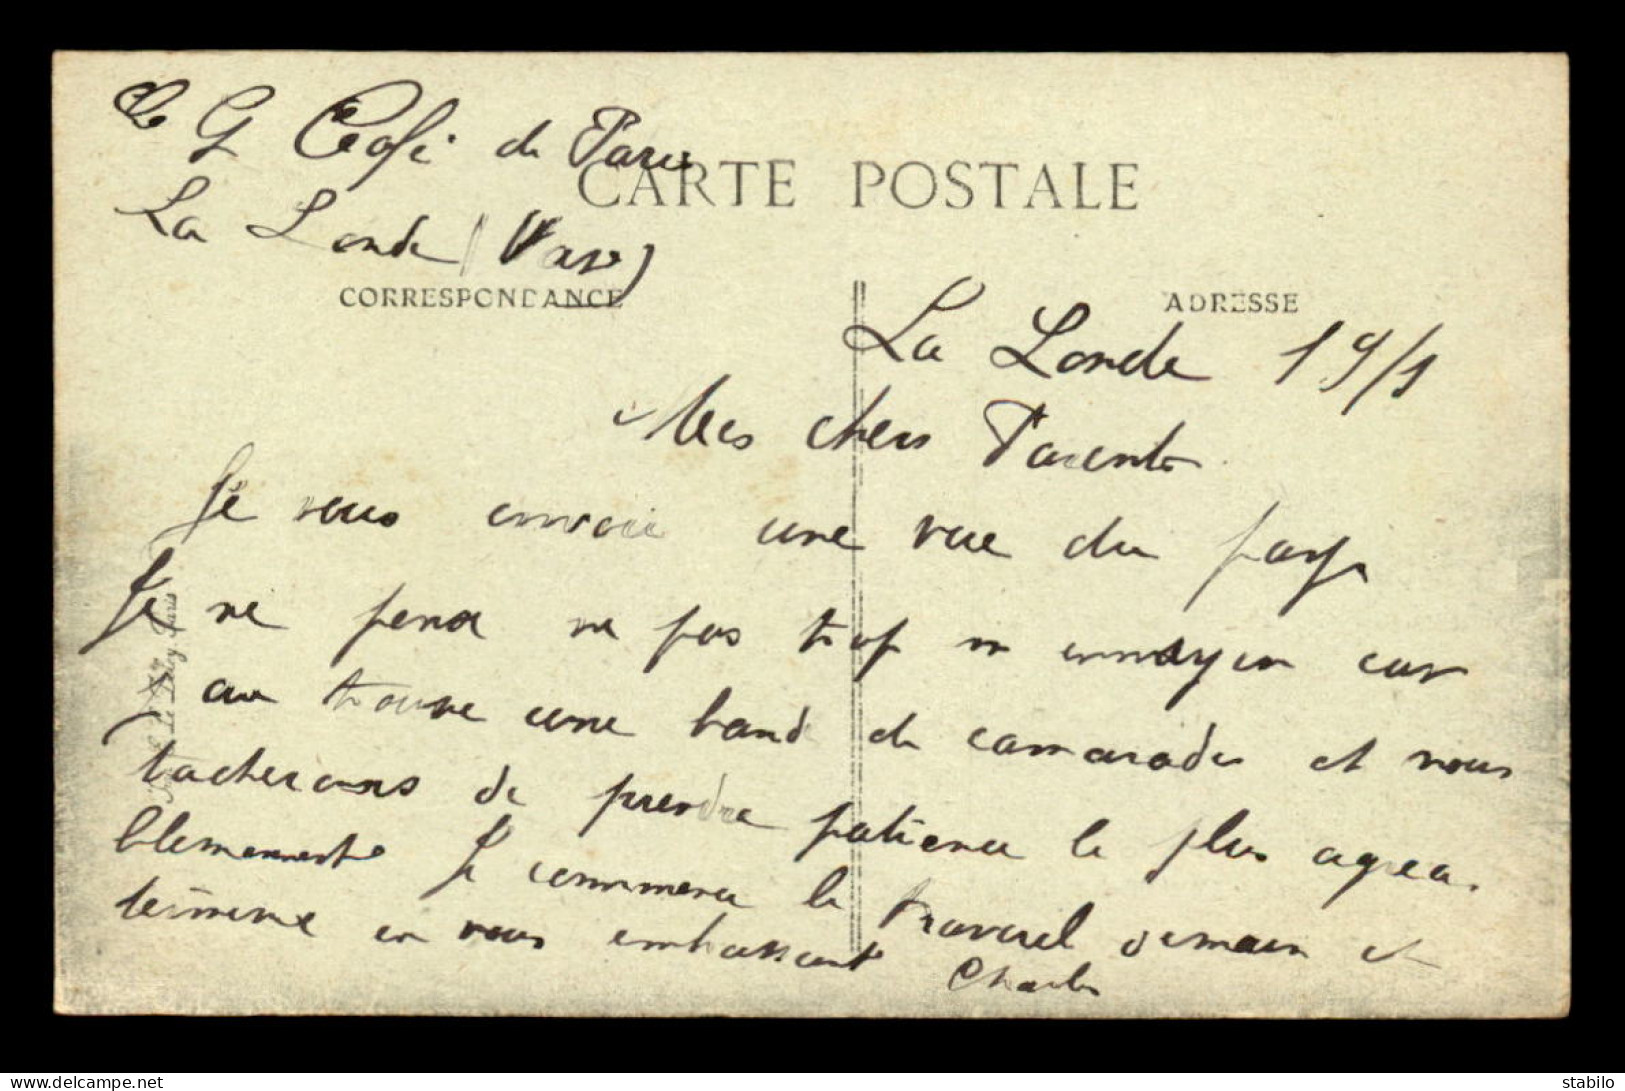 G Café de Paris
CARTE POSTALE
La Londe (Var)
CORRESPONDANCE
ADRESSE
La Londe 19/1
Mes chers Parents
Je vous envoie une vue du pays
Je ne pense ne pas trop m ennuyer car
on trouve une band de camarades et nous
tacherons de prendre patience le plus agrea.
blement Je commence le travail demain et
termine en vous embrassant
Charles
delcampe.net
stabilo